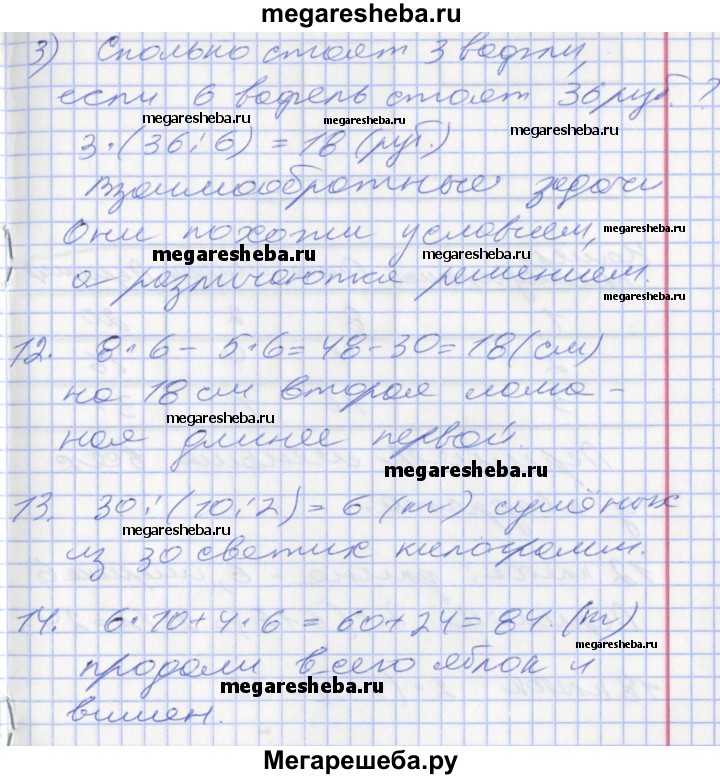 megaresheba.ru
3) Сколько стоят 3 вафли,
если 6 вафель стоят 36 руб.?
megaresheba.ru
megaresheba.ru
3·(36:6) = 18 (руб.)
Взаимообротные задачи
megaresheba.ru
Они похожи условием,
megaresheba.ru
megaresheba.ru
а различаются решением.
megaresheba.ru
12. 8·6 - 5·6 = 48 - 30 = 18 (см)
на 18 см вторая лома-
megaresheba.ru
ная длинее первой.
megaresheba.ru
13. 30:(10:2) = 6 (кг) сушёных
megaresheba.ru
из 30 свежих килограмм.
14. 6·10+4·6 = 60+24 = 84. (кг)
megaresheba.ru
продали всего яблок и
megaresheba.ru
вишен.
Мегарешеба.ру